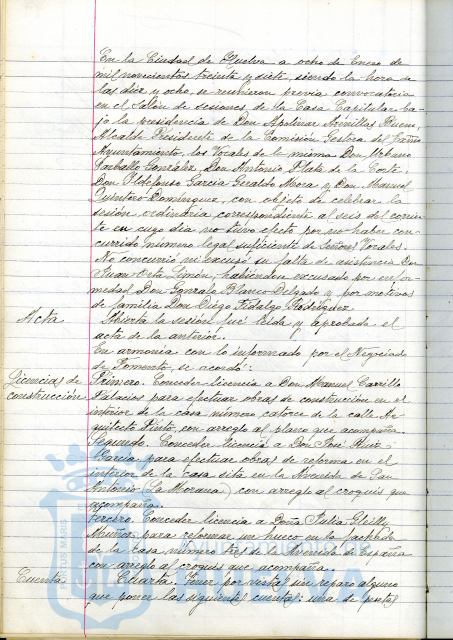 En la Ciudad de Huelva a ocho de Enero de
mil novecientos treinta y siete, siendo la hora de
las diez y ocho, se reunieron previa convocatoria
en el Salón de sesiones de la Casa Capitular ba-
jo la presidencia de Don Apolinar Arenillas
Alcalde Presidente de la Comisión Gestora del Excmo
Ayuntamiento, los Vocales de la misma Don Urbano
Carballo González, Don Antonio Plata de la Corte,
Don Ildefonso García Geraldo Mora y Don Manuel
Quintero Domínguez, con objeto de celebrar la
sesión ordinaria correspondiente al seis del corrien-
te en cuyo día no tuvo efecto por no haber con-
currido número legal suficiente de Señores Vocales.
No concurrió ni excusó su falta de asistencia Don
Juan Orta Limón, habiendola excusado por enfer-
medad Don Gonzalo Blanco Delgado y por motivos
de familia Don Diego Fidalgo Rodríguez
Acta
Abierta la sesión fué leida y aprobada el
acta de la anterior.
En armonia con lo informado por el Negociado
de Fomento, se acordó:
Licencias de
construcción
Primero. Conceder licencia a Don Manuel Carrillo
Palacios para efectuar obras de construcción en el
interior de la casa número catorce de la calle Ar-
quitecto Pinto, con arreglo al plano que acompaña
Segundo. Conceder licencia a Don José Ruiz
García para efectuar obras de reforma en el
interior de la casa sita en la Avenida de San
Antonio (La Morana) con arreglo al croquis que
acompaña.
Tercero. Conceder licencia a Doña Julia
Muñoz para reformar un hueco en la fachada
de la casa número tres de la Avenida de España
con arreglo al croquis que acompaña.
Cuenta
Cuarta. Tener por vistas sin reparo alguno
que poner las siguientes cuentas: una de pesetas
PORTUS MARIS